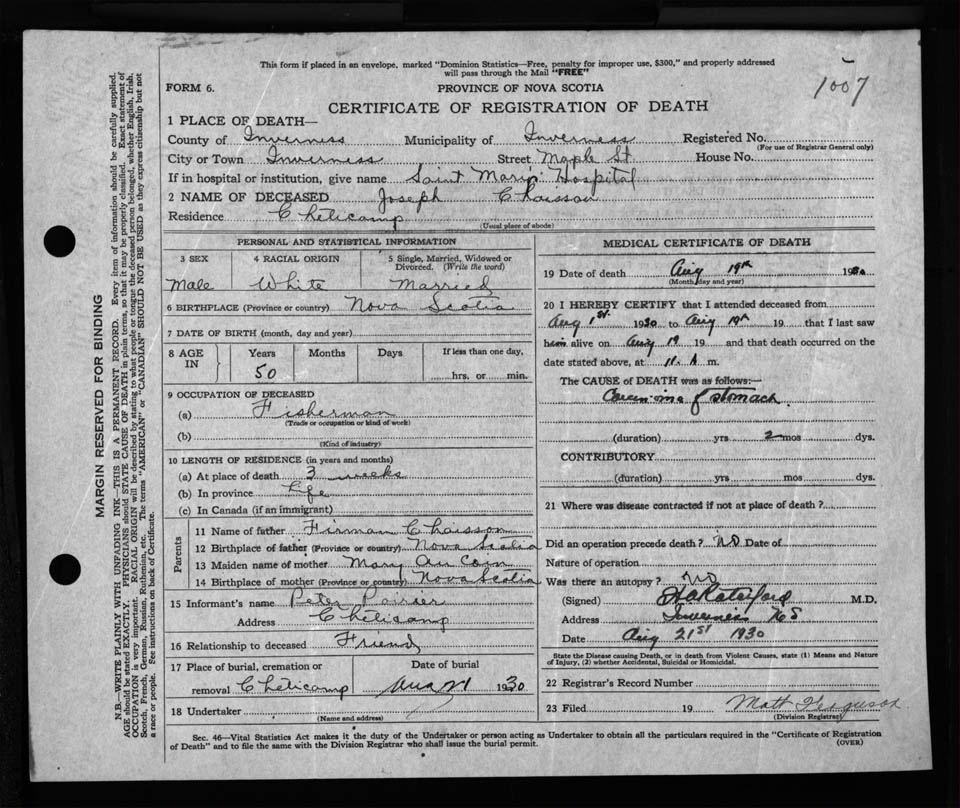 This form if placed in an envelope, marked "Dominion Statistics—Free, penalty for improper use, $300," and properly addressed
will pass through the Mail "FREE"
1007
FORM 6.
PROVINCE OF NOVA SCOTIA
CERTIFICATE OF REGISTRATION OF DEATH
1 PLACE OF DEATH—
County of Inverness Municipality of Inverness Registered No.
(For use of Registrar General only)
City or Town Inverness Street Maple St. House No.
If in hospital or institution, give name Saint Mary's Hospital
2 NAME OF DECEASED Joseph Chaisson
Residence Chéticamp
(Usual place of abode)
PERSONAL AND STATISTICAL INFORMATION
3 SEX 4 RACIAL ORIGIN 5 Single, Married, Widowed or Divorced. (Write the word)
Male White Married
6 BIRTHPLACE (Province or country) Nova Scotia
7 DATE OF BIRTH (month, day and year)
8 AGE IN Years Months Days If less than one day,
50 hrs. or min.
9 OCCUPATION OF DECEASED
(a) Fisherman
(Trade or occupation or kind of work)
(b)
(Kind of industry)
10 LENGTH OF RESIDENCE (in years and months)
(a) At place of death 3 weeks
(b) In province Life
(c) In Canada (if an immigrant)
Parents
11 Name of father Firman Chaisson
12 Birthplace of father (Province or country) Nova Scotia
13 Maiden name of mother Mary Au Coin
14 Birthplace of mother (Province or country) Nova Scotia
15 Informant's name Peter Poirier
Address Chéticamp
16 Relationship to deceased Friend
17 Place of burial, cremation or Date of burial
removal Chéticamp Aug 21 1930
18 Undertaker
(Name and address)
MEDICAL CERTIFICATE OF DEATH
19 Date of death Aug 19th 1930
(Month, day and year)
20 I HEREBY CERTIFY that I attended deceased from
Aug 1st 1930 to Aug 19th 19 that I last saw
him alive on Aug 19 19 and that death occurred on the
date stated above, at 11. A m.
The CAUSE of DEATH was as follows:—
Carcinoma of stomach
(duration) yrs 2 mos dys.
CONTRIBUTORY
(duration) yrs. mos. dys.
21 Where was disease contracted if not at place of death?
Did an operation precede death? No Date of
Nature of operation
Was there an autopsy? No
(Signed) M.D.
Address Inverness N S
Date Aug 21st 1930
State the Disease causing Death, or in death from Violent Causes, state (1) Means and Nature
of Injury, (2) whether Accidental, Suicidal or Homicidal.
22 Registrar's Record Number
23 Filed 19 Matt Ferguson
(Division Registrar)
Sec. 46—Vital Statistics Act makes it the duty of the Undertaker or person acting as Undertaker to obtain all the particulars required in the "Certificate of Registration
of Death" and to file the same with the Division Registrar who shall issue the burial permit.
(OVER)
MARGIN RESERVED FOR BINDING
N.B.—WRITE PLAINLY WITH UNFADING INK—THIS IS A PERMANENT RECORD. Every item of information should be carefully supplied.
AGE should be stated EXACTLY. PHYSICIANS should STATE CAUSE OF DEATH in plain terms, so that it may be properly classified. Exact statement of
OCCUPATION is very important. RACIAL ORIGIN will be described by stating to what people or tongue the deceased person belonged, whether English, Irish,
Scotch, French, German, Russian, Ruthenian, etc. The terms "AMERICAN" or "CANADIAN" SHOULD NOT BE USED as they express citizenship but not
a race or people. See instructions on back of Certificate.